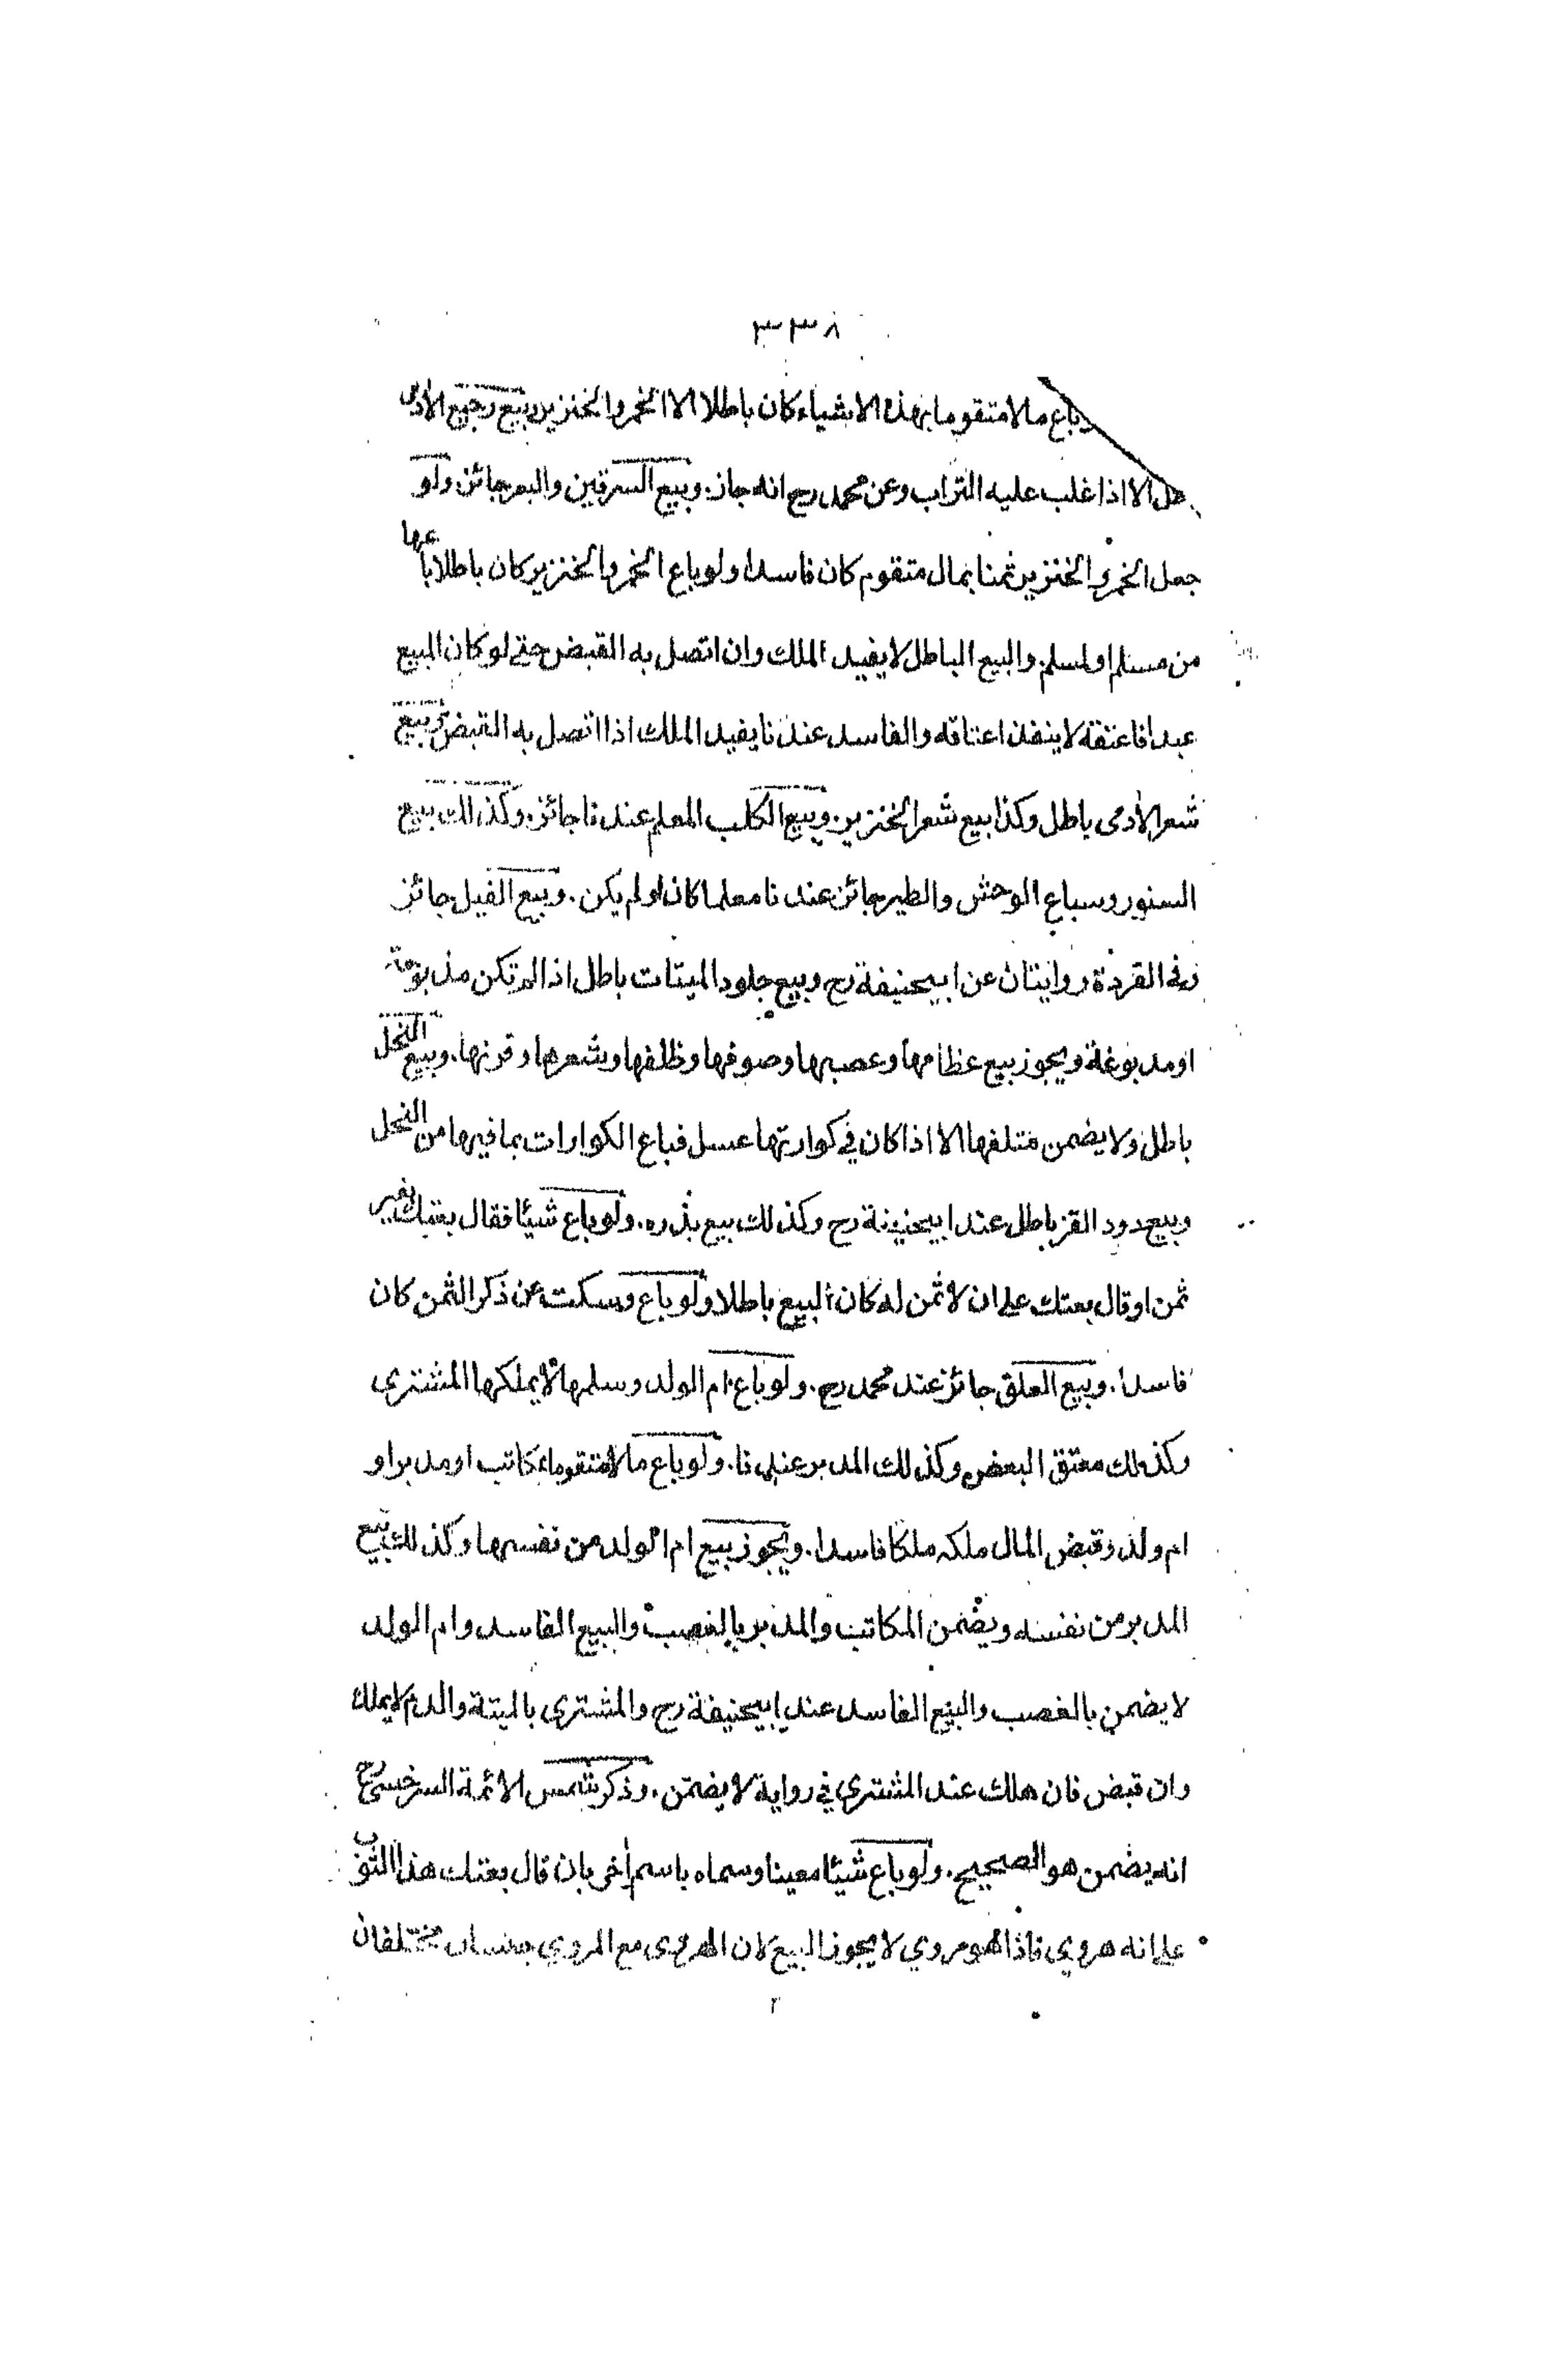 ٣٣٨
باع مالا متقوما بهذه الاشياء كان باطلا الا الخمر والخنزير وبيع رجيع الآدمى
الا اذا غلب عليه التراب وعن محمد رح انه جاز. وبيع السرقين والبعر جائز. ولو
جعل الخمر والخنزير ثمنا بمال متقوم كان فاسدا ولو باع الخمر والخنزير كان باطلا باعها
من مسلم او لمسلم. والبيع الباطل لا يفيد الملك وان اتصل به القبض حتى لو كان المبيع
عبدا فاعتقه لا ينفذ اعتاقه والفاسد عندنا يفيد الملك اذا اتصل به القبض وبيع
شعر الآدمى باطل وكذا بيع شعر الخنزير. وبيع الكلب المعلم عندنا جائز. وكذلك بيع
السنور وسباع الوحش والطير جائز عندنا معلما كان او لم يكن. وبيع الفيل جائز
وفى القردة روايتان عن ابيحنيفة رح وبيع جلود الميتات باطل اذا لم تكن مذبوحة
او مدبوغة ويجوز بيع عظامها وعصبها وصوفها وظلفها وشعرها وقرنها. وبيع النحل
باطل ولا يضمن متلفها الا اذا كان في كوارتها عسل فباع الكوارات بما فيها من النحل
وبيع دود القز باطل عند ابيحنيفة رح وكذلك بيع بذره. ولو باع شيئا فقال بعتك بغير
ثمن او قال بعتك على ان لا ثمن له كان البيع باطلا ولو باع وسكت عن ذكر الثمن كان
فاسدا. وبيع العلق جائز عند محمد رح. ولو باع ام الولد وسلمها لا يملكها المشتري
وكذلك معتق البعض وكذلك المدبر عندنا. ولو باع مالا متقوما بمكاتب او مدبر او
ام ولد وقبض المال ملكه ملكا فاسدا. ويجوز بيع ام الولد من نفسها وكذلك بيع
المدبر من نفسه ويضمن المكاتب والمدبر بالغصب والبيع الفاسد وام الولد
لا يضمن بالغصب والبيع الفاسد عند ابيحنيفة رح والمشترى بالميتة والدم لا يملك
وان قبض فان هلك عند المشتري في رواية لا يضمن. وذكر شمس الائمة السرخسى رح
انه يضمن هو الصحيح. ولو باع شيئا معينا وسماه باسم آخر بان قال بعتك هذا الثوب
على انه هروي فاذا هو مروي لا يجوز البيع لان الهروى مع المروي جنسان مختلفان